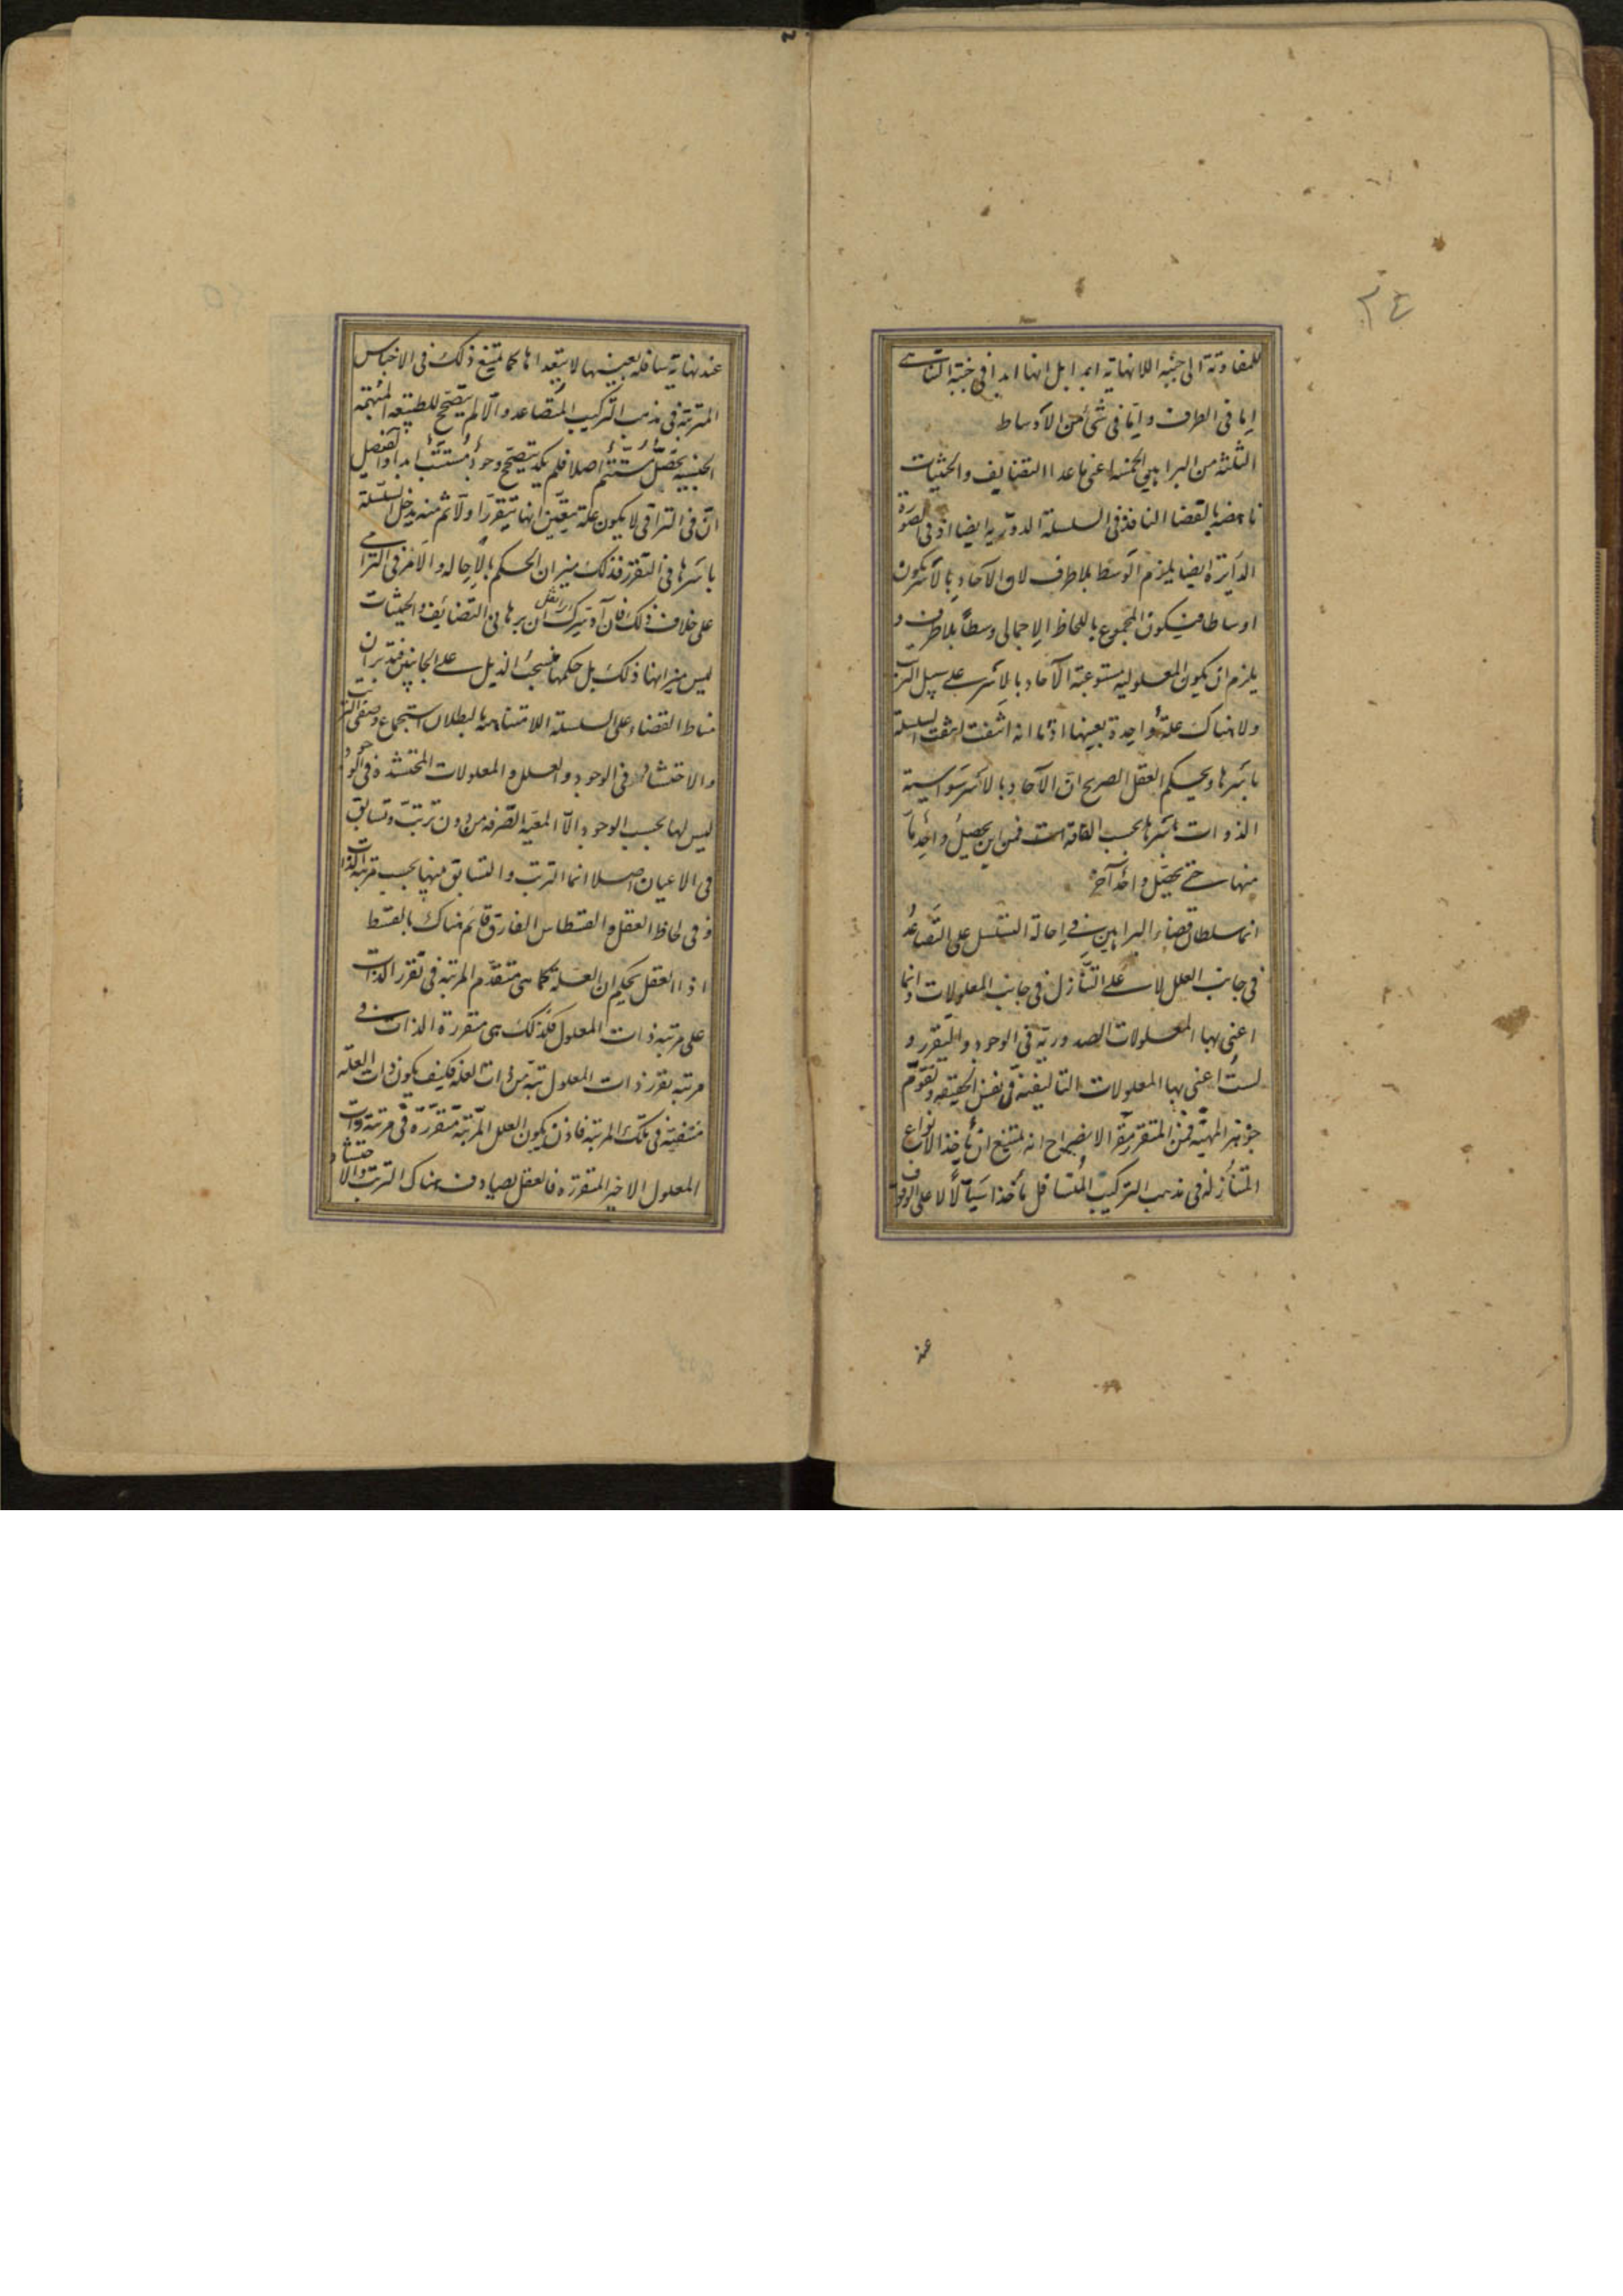 ٣٤
للمفاوتة الى جنبة اللانهاية ابدا بل انها ابدا في جنبة التناهي
اما في الطرف واما في شئ من الاوساط
الثلثة من البراهين الخمسة اعني ما عدا التضايف والحيثيات
ناهضة بالقضا النافذ في السلسلة الدورية ايضا اذ في الصورة
الدايرة ايضا يلزم الوسط بلا طرف لان الآحاد بالاسر يكون
اوساطا فيكون المجموع باللحاظ الاجمالى وسطا بلا طرف و
يلزم ان يكون المعلولية مستوعبة الآحاد بالاسر على سبيل الترتب
ولا هناك علة واحدة بعينها اذا ما انتفت انتفت السلسلة
باسرها ويحكم العقل الصريح ان الآحاد بالاسر سواسية
الذوات باسرها بحسب الفاقة فمن اين يحصل واحد ما
منها حتى يحصل واحد آخر
انما سلطان قضاء البراهين في احالة التسلسل على التصاعد
في جانب العلل لا على التنازل في جانب المعلولات وانما
اعنى بها المعلولات الصدورية في الوجود والتقرر و
لست اعنى بها المعلولات التاليفية في نفس الحقيقة وتقوم
جوهر المهية فمن المتقرر مقره الايضاح انه يمتنع ان ياخذ الانواع
المتنازلة في مذهب التركيب المتسافل ماخذا سيالا لا على الوقوف
عند
عند نهاية سافلة بعينها لا يتعداها كما يمتنع ذلك في الاجناس
المترتبة في مذهب التركيب المتصاعد والا لم يتصحح للطبيعة المبهمة
الجنسية تحصل مستتم اصلا فلم يكد يتصحح وجود مستتب ابدا والفيصل
ان في التراقى لا يكون علة يتعين انها يتقرر اولا ثم منه يدخل السلسلة
باسرها في التقرر فذلك ميزان الحكم بالاحاله والامر في الترامى
على خلاف ذلك فان آدتيرك ان برهانى التضائف والحيثيات
ليس ميزانها ذلك بل حكمها منسحب الذيل على الجانبين فتدبر ان
مناط القضاء على السلسلة اللامتناهية بالبطلان استجماع وصفى الترتب
والاحتشاد في الوجود والعلل والمعلولات المحتشدة في الوجود
ليس لها بحسب الوجود الا المعية الصرفة من دون ترتب وتسابق
في الاعيان اصلا انما الترتب والتسابق منها بحسب مرتبة الذات
و في لحاظ العقل والقسطاس الفارق قائم هناك بالقسط
اذ العقل يحكم ان العلة كما هى متقدم المرتبة في تقرر الذات
على مرتبة ذات المعلول فكذلك هى متقررة الذات في
مرتبة تقرر ذات المعلول بتة من ذات العلة فكيف يكون ذات العلة
منتفية في تلك المرتبة فاذن يكون العلل المترتبة متقررة في مرتبة ذات
المعلول الاخير المتقررة فالعقل يصادف هناك الترتب والاحتشاد